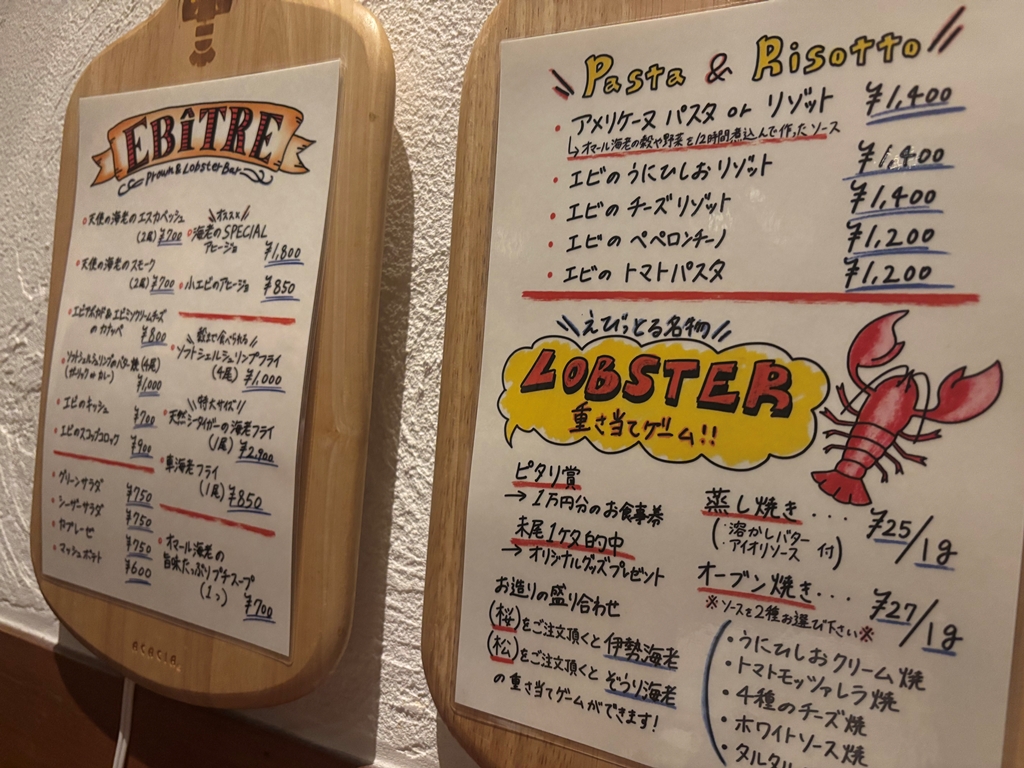 EBîTRE
Prawn & Lobster Bar
・天使の海老のエスカベッシュ
(2尾) ¥700
・天使の海老のスモーク
(2尾) ¥700
・エビアボカド&エビミソクリームチーズ
のカナッペ ¥800
・ソフトシェルシュリンプのバター焼(4尾)
(ガーリック or カレー)
¥1,000
・エビのキッシュ ¥700
・エビのスコップコロッケ ¥900
・グリーンサラダ ¥750
・シーザーサラダ ¥750
・カプレーゼ ¥750
・マッシュポテト ¥600
\\オススメ//
・海老のSPECIAL
アヒージョ ¥1,800
・小エビのアヒージョ ¥850
\\殻まで食べられる//
・ソフトシェルシュリンプフライ
(4尾) ¥1,000
\\特大サイズ//
・天然シータイガーの海老フライ
(1尾) ¥2,900
・車海老フライ
(1尾) ¥850
・オマール海老の
旨味たっぷりプチスープ
(1つ) ¥700
acacia
Pasta & Risotto
・アメリケーヌ パスタ or リゾット ¥1,400
↳オマール海老の殻や野菜を12時間煮込んで作ったソース
・エビのうにひしおリゾット ¥1,400
・エビのチーズリゾット ¥1,400
・エビのペペロンチーノ ¥1,200
・エビのトマトパスタ ¥1,200
\\えびっとる名物//
LOBSTER
重さ当てゲーム!!
ピタリ賞
→1万円分のお食事券
末尾1ケタ的中
→オリジナルグッズプレゼント
お造りの盛り合わせ
(桜)をご注文頂くと伊勢海老
(松)をご注文頂くとぞうり海老
の重さ当てゲームができます!
蒸し焼き・・・ ¥25/1g
(溶かしバター
・アイオリソース 付)
オーブン焼き・・・ ¥27/1g
※ソースを2種お選び下さい※
・うにひしおクリーム焼
・トマトモッツァレラ焼
・4種のチーズ焼
・ホワイトソース焼
・タルタル